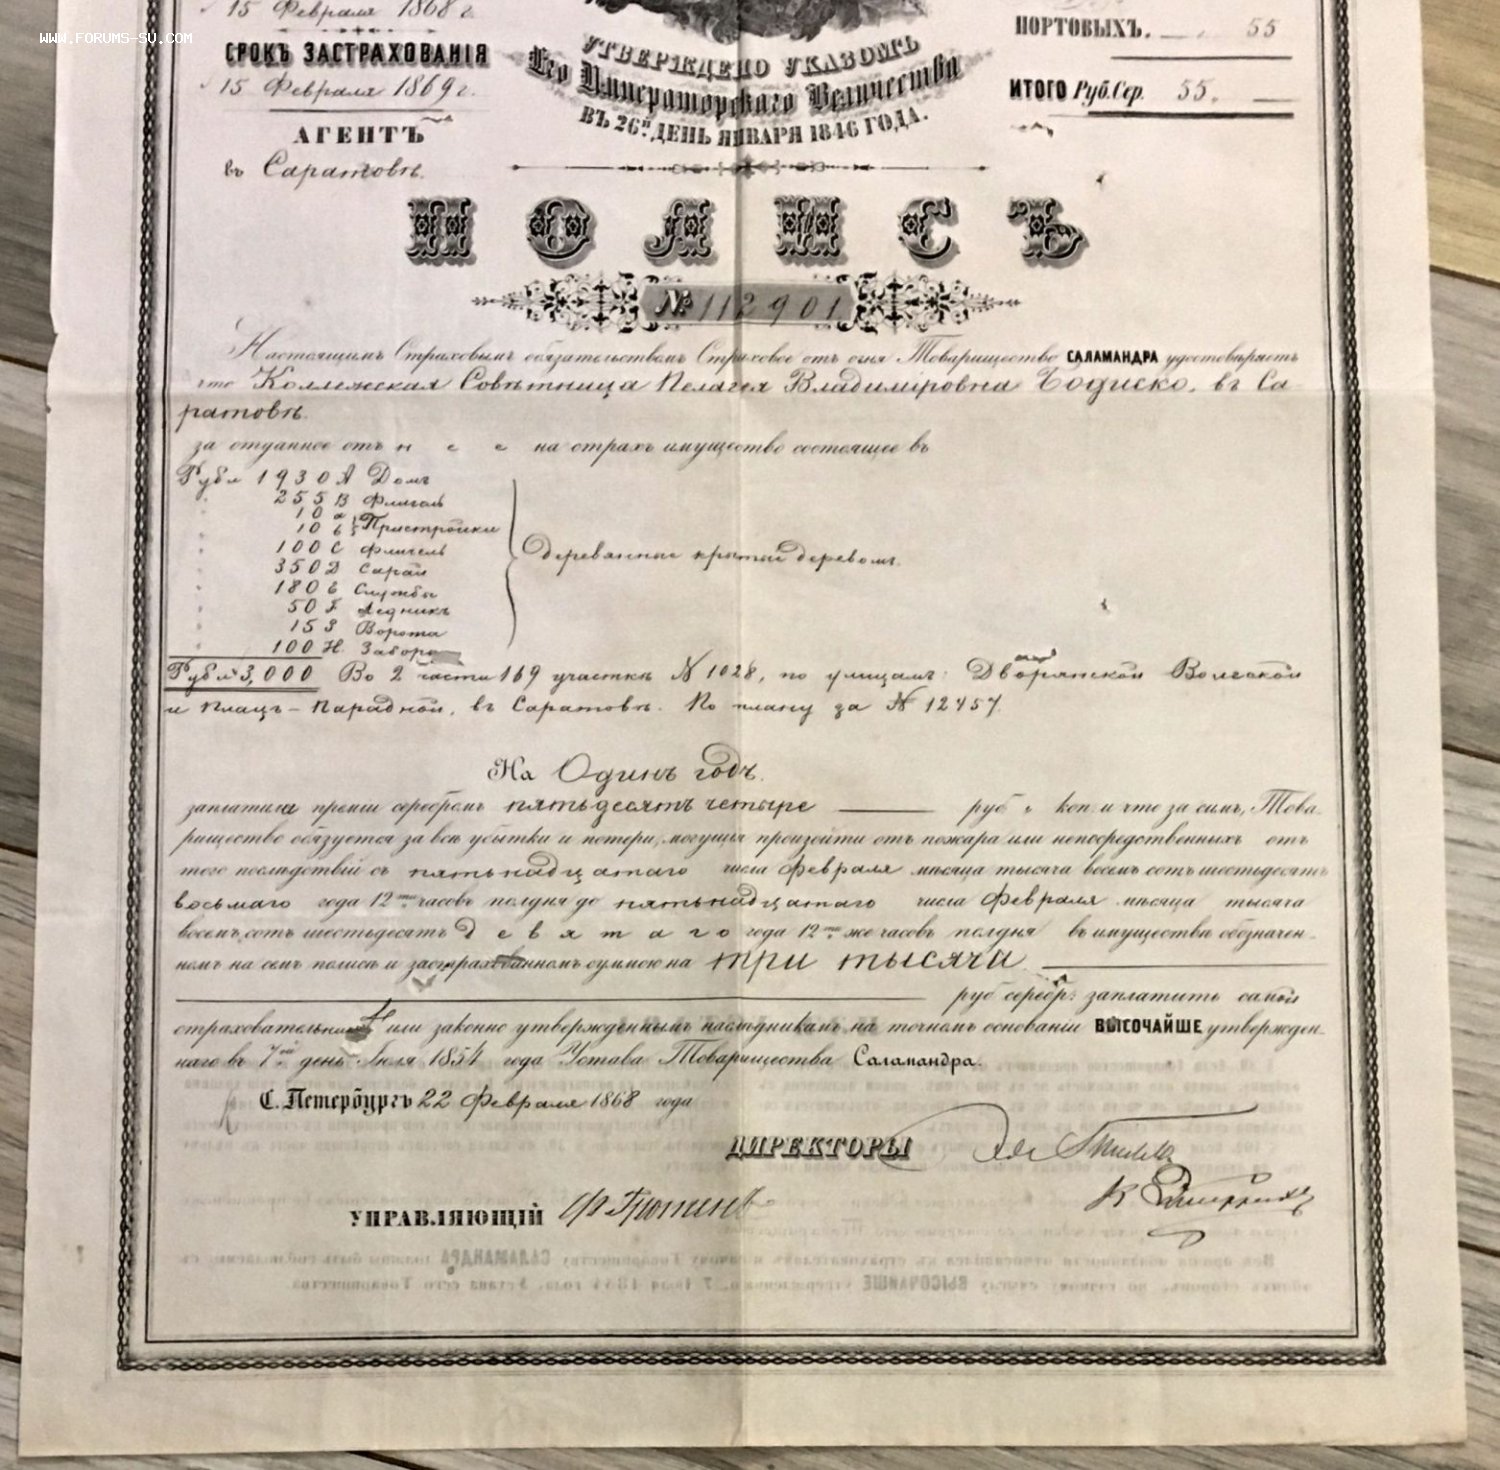 www.forums-su.com
15 Февраля 1868 г.
ПОРТОВЫХЪ. 55
СРОКЪ ЗАСТРАХОВАНІЯ
15 Февраля 1869 г.
ИТОГО Руб. Сер. 55.
УТВЕРЖДЕНО УКАЗОМЪ
Его Императорскаго Величества
ВЪ 26й ДЕНЬ ЯНВАРЯ 1846 ГОДА.
АГЕНТЪ
въ Саратовѣ.
ПОЛИСЪ
№ 112901
Настоящимъ Страховымъ обязательствомъ Страховое отъ огня Товарищество САЛАМАНДРА удостовѣряетъ
что Коллежская Совѣтница Пелагея Владиміровна Бодиско, въ Са
ратовѣ.
за отданное отъ нее на страхъ имущество состоящее въ
Рубл 1930 А Домъ
255 В Флигель
10 а
10 b Пристройки
100 С Флигель
350 D Сарай
180 Е Службы
50 F Ледникъ
15 G Ворота
100 H. Заборъ
Деревянные крытые деревомъ.
Рубл 3,000 Во 2 части 169 участкѣ № 1028, по улицамъ: Дворянской Волгской
и Плацъ-Парадной, въ Саратовѣ. По плану за № 12457.
На Одинъ годъ.
заплатила преміи серебромъ пятьдесятъ четыре руб коп. и что за симъ, Това-
рищество обязуется за всѣ убытки и потери, могущія произойти отъ пожара или непосредственныхъ отъ
того послѣдствій съ пятьнадцатаго числа Февраля мѣсяца тысяча восемъ сотъ шестьдесятъ
восьмаго года 12ти часовъ полдня до пятьнадцатаго числа Февраля мѣсяца тысяча
восемъ сотъ шестьдесятъ девятаго года 12ти же часовъ полдня въ имуществѣ обозначен-
номъ на семъ полисѣ и застрахованномъ суммою на три тысячи
руб серебр: заплатить самой
страховательницѣ или законно утвержденнымъ наслѣдникамъ на точномъ основаніи ВЫСОЧАЙШЕ утвержден-
наго въ 7й день Іюля 1854 года Устава Товарищества Саламандра.
С. Петербургъ 22 Февраля 1868 года
ДИРЕКТОРЫ
УПРАВЛЯЮЩІЙ